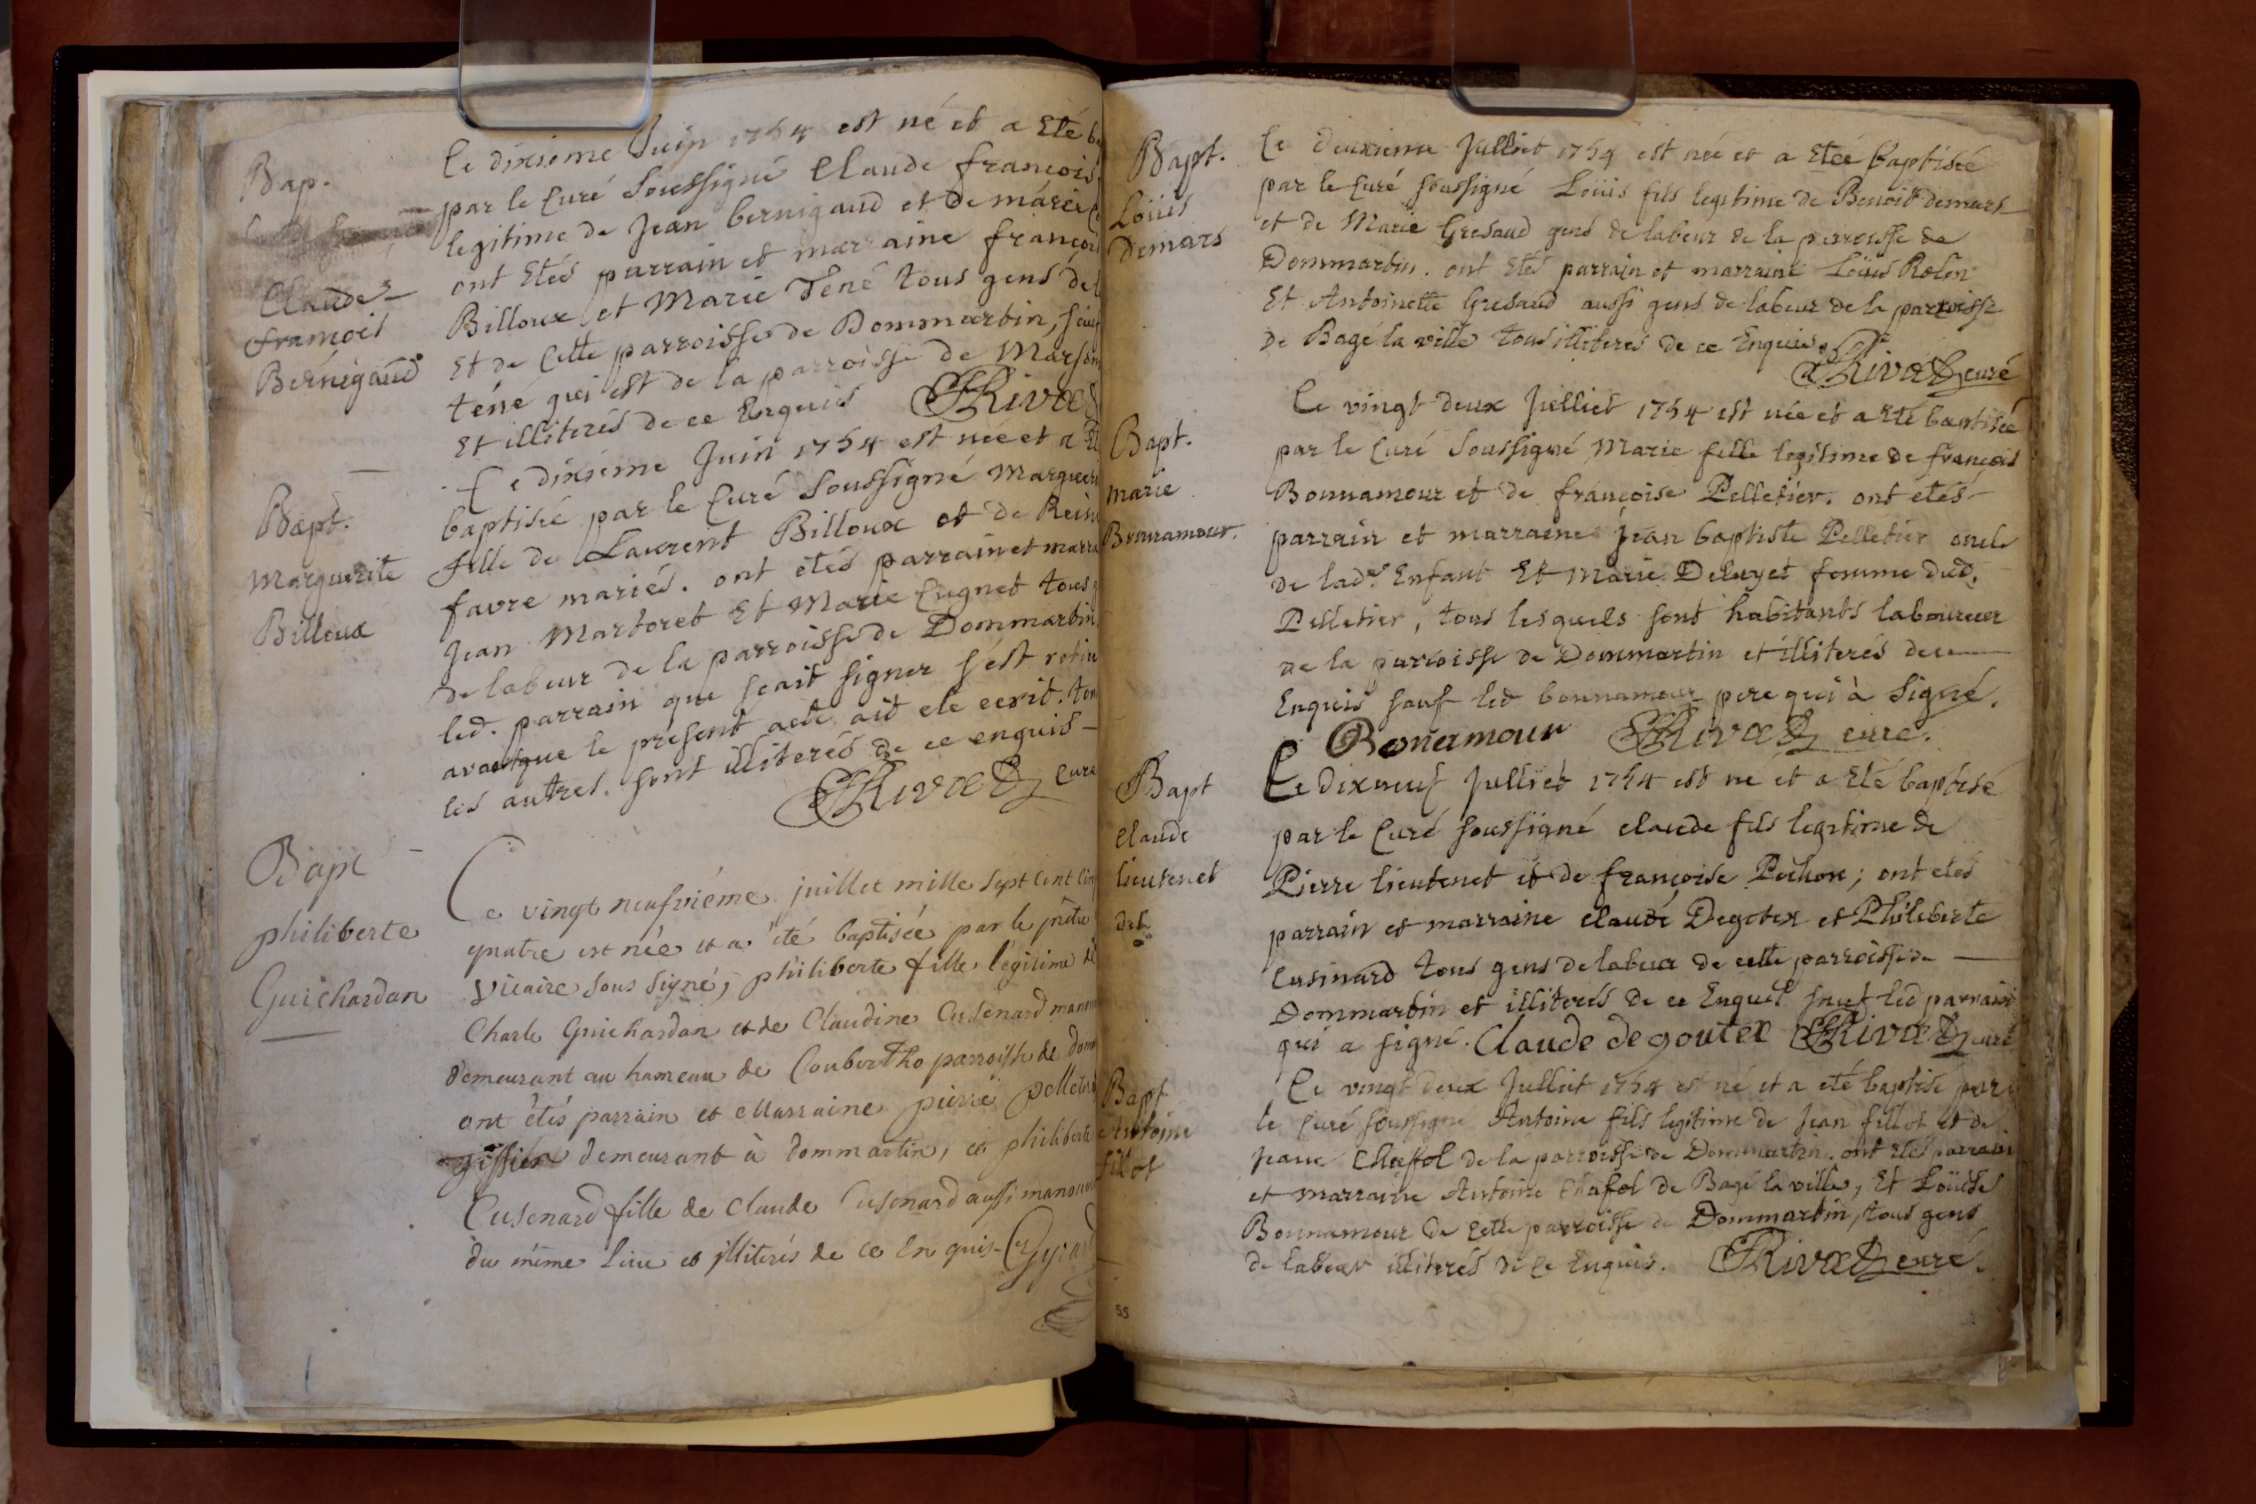 Bap.
Claude
francois
Bernigaud
Le dixieme Juin 1754 est né et a Eté
par le Curé Soussigné Claude francois
legitime de Jean bernigaud et de marie
ont Etés parrain et marraine francois
Billoux et Marie Tené tous gens de
Et de Cette parroisse de Dommartin,
tené qui est de la parroisse de
Et illiterés de ce Enquis Rivat
Bapt.
Marguerite
Billoux
Le dixieme Juin 1754 est née et a
baptisée par le Curé Soussigné
fille de Laurent Billoux et de
favre mariés. ont etés parrain et
Jean Martoret Et Marie Cugnet tous
de labeur de la parroisse de Dommartin
led. parrain que scait signer s'est
avantque le present acte ait ete ecrit.
les autres sont illiterés de ce enquis
Rivat Curé
Bapt
philiberte
Guichardan
Le vingt neufvième juillet mille sept cent
quatre est née et a été baptisée par le prêtre
Vicaire sous signé, philiberte fille légitime de
Charle Guichardan et de Claudine Cusenard
demeurant au hameau de parroisse de
ont étés parrain et Marraine pierre
demeurant à dommartin, et philiberte
Cusenard fille de Claude Cusenard aussi
du même lieu et illiterés de ce Enquis
Bapt.
Loüis
Demars
Le deuxieme Julliet 1754 est né et a Etée baptiséé
par le Curé soussigné Loüis fils legitime de Benoit demars
et de Marie Gresaud gens de labeur de la parroisse de
Dommartin. ont Etés parrain et marraine Loüis Rolin
Et Antoinette Gresaud aussi gens de labeur de la parroisse
de Bagé la ville tous illiterés de ce Enquis.
Rivat curé
Bapt.
Marie
Bonnamour.
Le vingt deux Julliet 1754 est née et a Eté baptisée
par le Curé Soussigné Marie fille legitime de françois
Bonnamour et de françoise Pelletier. ont étés
parrain et marraine Jean baptiste Pelletier oncle
de lad.e Enfant Et Marie Deluyet femme dud.
Pelletier, tous lesquels sont habitants laboureur
de la parroisse de Dommartin et illiterés de ce
Enquis sauf led bonnamour pere qui à Signé.
Bonamour Rivat curé.
Bapt
Claude
lieutenet
Le Dixneuf Julliet 1754 est né et a Eté baptisé
par le Curé soussigné claude fils legitime de
Pierre lieutenet et de françoise Pochon; ont etés
parrain et marraine claude Degotex et Philiberte
Cusinard tous gens de labeur de cette parroisse de
Dommartin et illiterés de ce Enquis sauf led parrain
qui a signé. Claude degoutex Rivat curé
Bapt
Antoine
fillot
Le vingt deux Julliet 1754 est né et a eté baptisé par
le Curé soussigné Antoine fils legitime de Jean fillot et de
Jeane Chaffol de la parroisse de Dommartin. ont Etés parrain
et marraine Antoine Chafol de Bagé la ville, Et Loüise
Bonnamour de cette parroisse de Dommartin, tous gens
de labeur illiterés de ce Enquis. Rivat curé.
55